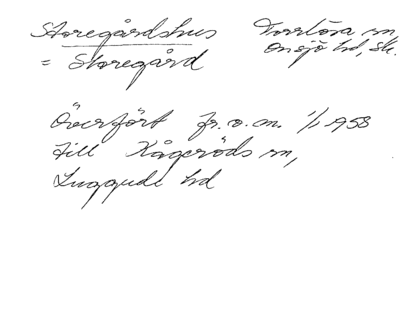 Storegårdshus Torrlösa sn,
Onsjö hd, Sk.
= Storegård
Överfört fr.o.m. 1/1 1958
till Kågeröds sn,
Luggude hd